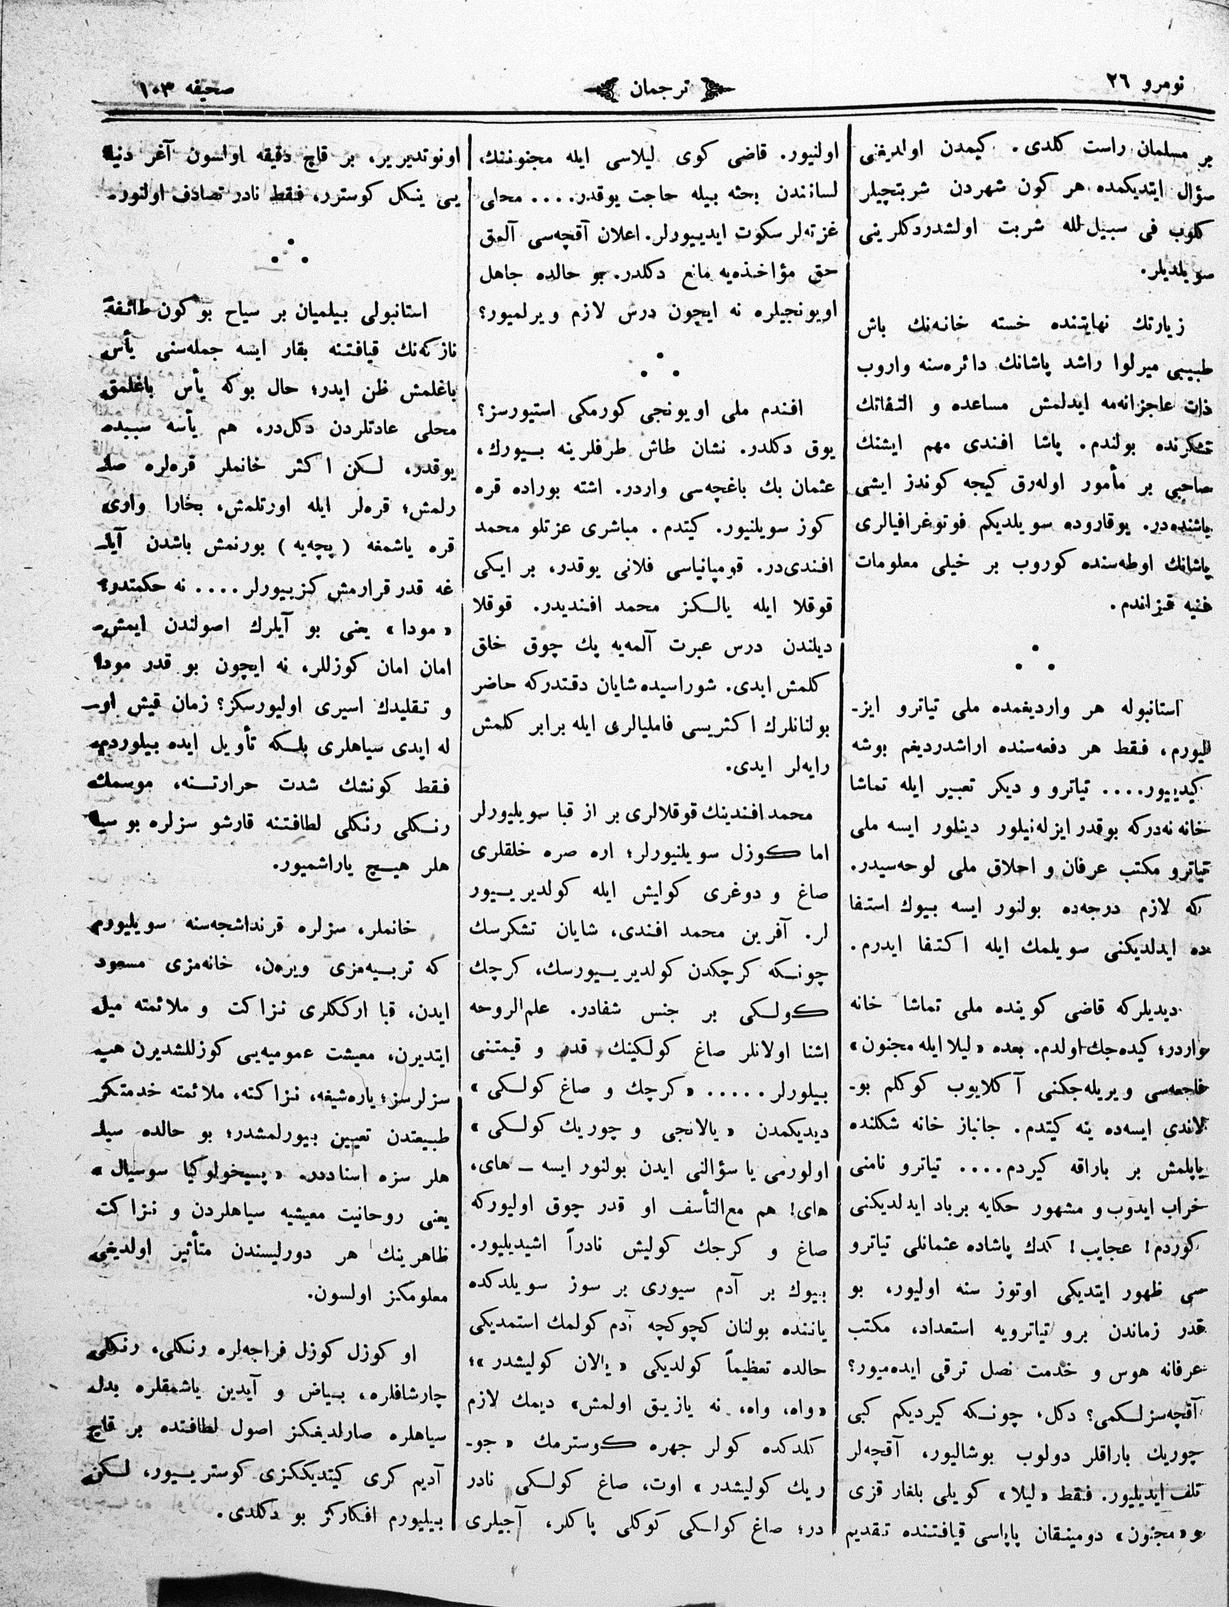 نومرو ٢٦
ترجمان
صحيفه ١٠٣
بر مسلمان راست كلدى. كيمدن اولديغنى
سؤال ايتديكمده هر كون شهردن شربتچيلر
كلوب فى سبيل لله شربت اولشدردكلرينى
سويلديلر.
زيارتك نهايتنده خسته خانه‌نك باش
طبيبى ميرلوا راشد پاشانك دائره‌سنه واروب
ذات عاجزانه‌مه ايدلمش مساعده و التفاتك
تشكرنده بولندم. پاشا افندى مهم ايشنك
صاحبى بر مأمور اوله‌رق كيجه كوندز ايشى
باشنده‌در. يوقاروده سويلديكم فوتوغرافيالرى
پاشانك اوطه‌سنده كوروب بر خيلى معلومات
فنيه قزاندم.
استانبوله هر وارديغمده ملى تياترو ايز‍ـ
ليورم، فقط هر دفعه‌سنده اراشدرديغم بوشه
كيديبور.... تياترو و ديكر تعبير ايله تماشا
خانه نه‌دركه بوقدر ايزله‌نيلور دينلور ايسه ملى
تياترو مكتب عرفان و احلاق ملى لوحه‌سيدر.
كه لازم درجه‌ده بولنور ايسه بيوك استفا
ده ايدلديكنى سويلمك ايله اكتفا ايدرم.
ديديلركه قاضى كوينده ملى تماشا خانه
واردر؛ كيده‌جك اولدم. بعده «ليلا ايله مجنون»
فاجعه‌سى ويريله‌جكنى آكلايوب كوكلم بو‍ـ
لاندى ايسه‌ده ينه كيتدم. جانباز خانه شكلنده
ياپلمش بر باراقه كيردم.... تياترو نامنى
خراب ايدوب و مشهور حكايه برباد ايدلديكنى
كوردم! عجايب! كدك پاشاده عثمانلى تياترو
سى ظهور ايتديكى اوتوز سنه اوليور، بو
قدر زماندن برو تياترويه استعداد، مكتب
عرفانه هوس و خدمت نصل ترقى ايده‌ميور؟
آقچه‌سزلكمى؟ دكل، چونكه كيرديكم كبى
چوريك باراقلر دولوب بوشاليور، آقچه‌لر
تلف ايديليور. فقط «ليلا» كويلى بلغار قزى
و «مجنون» دومينقان پاپاسى قيافتنده تقديم
اولنيور. قاضى كوى ليلاسى ايله مجنوننك،
لسانندن بحثه بيله حاجت يوقدر.... محلى
غزته‌لر سكوت ايديبورلر. اعلان آقچه‌سى آلمق
حق مؤاخذه‌يه مانع دكلدر. بو حالده جاهل
اويونجيلره نه ايچون درس لازم ويرلميور؟
افندم ملى اويونجى كورمكى استيورسز؟
يوق دكلدر. نشان طاش طرفلرينه بيورك،
عثمان بك باغچه‌سى واردر. اشته بوراده قره
كوز سويلنيور. كيتدم. مباشرى عزتلو محمد
افندى‌در. قومپانياسى فلانى يوقدر، بر ايكى
قوقلا ايله يالكز محمد افنديدر. قوقلا
ديلندن درس عبرت آلمه‌يه پك چوق خلق
كلمش ايدى. شوراسيده شايان دقتدركه حاضر
بولنانلرك اكثريسى فاميليالرى ايله برابر كلمش
رايه‌لر ايدى.
محمد افندينك قوقلالرى بر از قبا سويليورلر
اما كوزل سويلنيورلر؛ اره صره خلقلرى
صاغ و دوغرى كوليش ايله كولديريبور
لر. آفرين محمد افندى، شايان تشكرسك
چونكه كرچكدن كولديريبورسك، كرچك
كولكى بر جنس شفادر. علم الروحه
اشنا اولانلر صاغ كولكينك قدر و قيمتنى
بيلورلر..... «كرچك و صاغ كولكى»
ديديكمدن «يالانجى و چوريك كولكى»
اولورمى يا سؤالنى ايدن بولنور ايسه ـ هاى،
هاى! هم مع التأسف او قدر چوق اوليوركه
صاغ و كرجك كوليش نادراً اشيديليور.
بيوك بر آدم سيورى بر سوز سويلدكده
ياننده بولنان كچوكچه آدم كولمك استمديكى
حالده تعظيماً كولديكى «يالان كوليشدر»؛
«واه، واه، نه يازيق اولمش» ديمك لازم
كلدكده كولر جهره كوسترمك «جو‍ـ
ريك كوليشدر» اوت، صاغ كولكى نادر
در؛ صاغ كولكى كوكلى پاكلر، آجيلرى
اونوتديرير، بر قاچ دقيقه اولسون آغر دنيا
يى ينكل كوسترر، فقط نادر تصادف اولنور.
استانبولى بيلميان بر سياح بو كون طائفهٔ
نازكه‌نك قيافتنه بقار ايسه جمله‌سنى يأس
باغلمش ظن ايدر؛ حال بوكه يأس باغلمق
محلى عادتلردن دكل‌در. هم يأسه سببده
يوقدر، لكن اكثر خانملر قره‌لره صا‍ـ
رلمش؛ قره‌لر ايله اورتلمش، بخارا وارى
قره ياشمغه (پچه‌يه) بورنمش باشدن آيا‍ـ
غه قدر قرارمش كزيبورلر.... نه حكمتدر؟
«مودا» يعنى بو آيلرك اصولندن ايمش.
امان امان كوزللر، نه ايچون بو قدر مودا
و تقليدك اسيرى اوليورسكز؟ زمان قيش او‍ـ
له ايدى سياهلرى بلكه تأويل ايده بيلوردم،
فقط كونشك شدت حرارتنه، موسمك
رنكلى رنكلى لطافتنه قارشو سزلره بو سيا
هلر هيچ ياراشميور.
خانملر، سزلره قرنداشجه‌سنه سويليورم
كه تربيه‌مزى ويره‌ن، خانه‌مزى مسعود
ايدن، قبا ارككلرى نزاكت و ملائمته ميل
ايتديرن، معيشت عموميه‌يى كوزللشديرن هپ
سزلرسز؛ ياره‌شيغه، نزاكته، ملائمته خدمتكز
طبيعتدن تعيين بيورلمشدر؛ بو حالده سيا‍ـ
هلر سزه اسناددر. «پسيخولوكيا سوسيال»
يعنى روحانيت معيشيه سياهلردن و نزاكت
ظاهرينك هر دورليسندن متأثير اولديغى
معلومكز اولسون.
او كوزل كوزل فراجه‌لره رنكلى، رنكلى
چارشافلره، بياض و آيدين ياشمقلره بدل
سياهلره صارلديغكز اصول لطافتده بر قاچ
آديم كرى كيتديككزى كوستريبور، لكن
بيليورم افكاركز بو دكلدى.